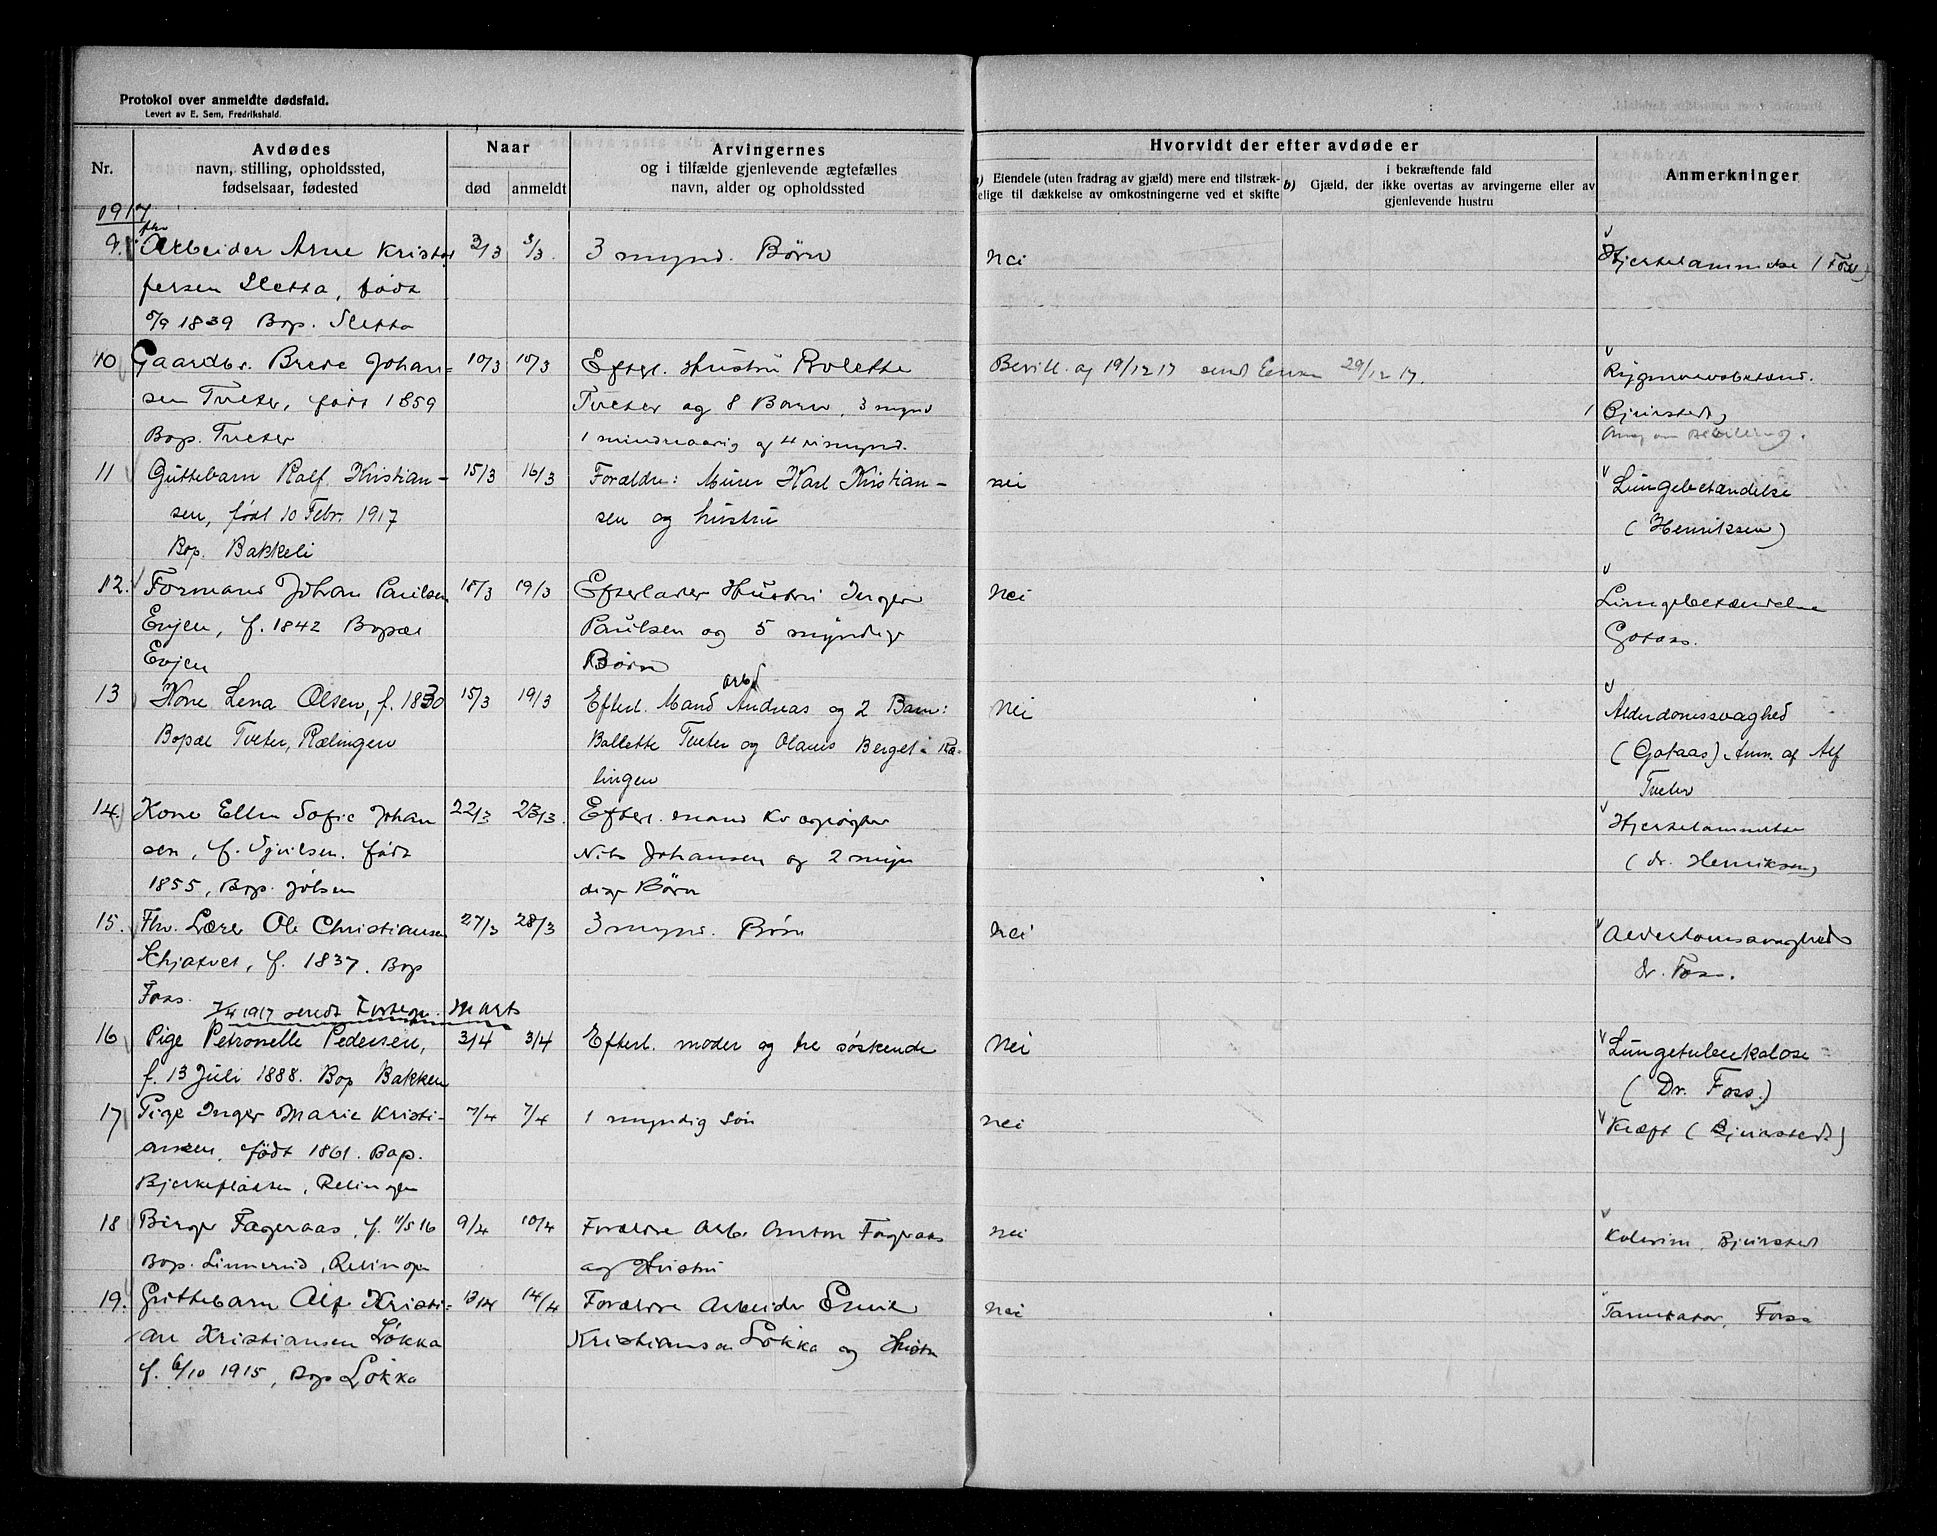 Protokol over anmeldte dødsfald.
Levert av E. Sem, Fredrikshald.
Nr.
Avdødes
navn, stilling, opholdssted,
fødselsaar, fødested
Naar
død
anmeldt
Arvingernes
og i tilfælde gjenlevende ægtefælles
navn, alder og opholdssted
Hvorvidt der efter avdøde er
a) Eiendele (uten fradrag av gjæld) mere end tilstræk-
elige til dækkelse av omkostningerne ved et skifte
b) Gjæld, der
i bekræftende fald
ikke overtas av arvingerne eller av
gjenlevende hustru
Anmerkninger
1917
9. Arbeider Arne Kristof 3/3 3/3. 3 mynd. Børn nei Hjertelammelse (Foss)
fersen Sletta, født
5/9 1839 Bop. Sletta
10 Gaardbr. Brede Johan= 10/3 10/3 Efterl. Hustru Bolette Bevill. af 19/12 17 sendt 29/12 17. Rygmarvsbetænd.
sen Tveter, født 1859 Tveter og 8 Barn, 3 mynd Bjørnstedt
Bop. Tveter 1 mindreaarig og 4 umynd. om Bevilling.
11 Guttebarn Ralf Kristian- 15/3 16/3 Forældre: Murer Karl Kristian- nei Lungebetændelse
sen, født 10 Febr. 1917 sen og hustru (Henriksen)
Bop. Bakkeli
12. Formand Johan Paulsen 18/3 19/3 Efterlader Hustru Inger Nei Lungebetændelse
Evjen, f. 1842 Bopæl Paulsen og 5 myndige Gotaas.
Evjen Børn
13 Kone Lena Olsen, f. 1830 15/3 19/3 Efterl. Mand arbd Andreas og 2 Barn: Nei Alderdomssvaghed
Bopæl Tveter, Rælingen Bollette Tveter og Olaus Berget i Ræ- (Gotaas) Anm. af Alf
lingen Tveter
14. Kone Ellen Sofie Johan 22/3 23/3. Efterl. mand Hjertelammelse
sen, f. født Nils Johansen og 2 myn (dr. Henriksen)
1855, Bop. Jølsen dige Børn
15. Fhv. Lærer Ole Christiansen 27/3 28/3 3 mynd. Børn nei Alderdomssvaghed
f. 1837. Bop dr. Foss.
Foss.
7/4 1917 sendt Fortegn. Marts
16 Pige Petronelle Pedersen, 3/4 3/4 Efterl. moder og tre søskende Nei Lungetuberkulose
f. 13 Juli 1888. Bop Bakken (Dr. Foss.)
17 Pige Inger Marie Kristi- 7/4 7/4 1 myndig søn nei Kræft (Bjørnstedt)
ansen, født 1861. Bop.
Bjerkeplassen, Relingen
18 Birger Fageraas, f. 11/5 16 9/4 10/4 Forældre Arb. Anton Fageraas nei Kolerine, Bjørnstedt
Bop. Linnerud, Relingen og Hustru
19. Guttebarn Alf Kristi- 13/4 14/4 Forældre Arbeider Emil nei Tarmkatar, Foss
an Kristiansen Løkka Kristiansen Løkka og Hustru
f. 6/10 1915, Bop Løkka